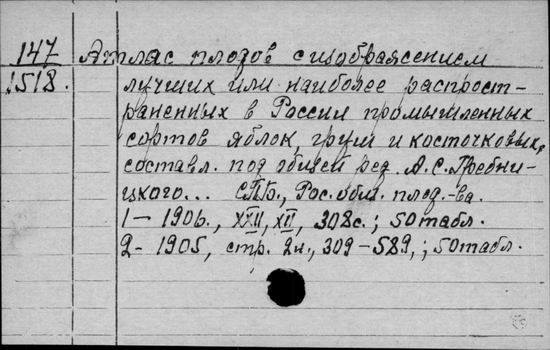 147 Атлас плодов с изображением
1518. лучших или наиболее распрост-
раненных в России промышленных
сортов яблок, груш и косточковых,
составл. под общей ред. А.С. Гребни-
цкого... СПБ., Рос. общ. плод.-ва.
1 – 1906., XXII, XII, 308с.; 50 табл.
2 - 1905, стр. 2н., 309 – 589,; 50 табл.